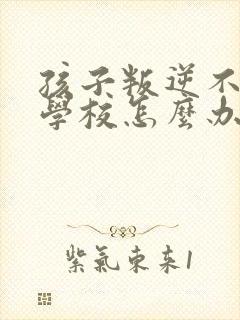 孩子叛逆不
學校怎麼办
紫氣東来1